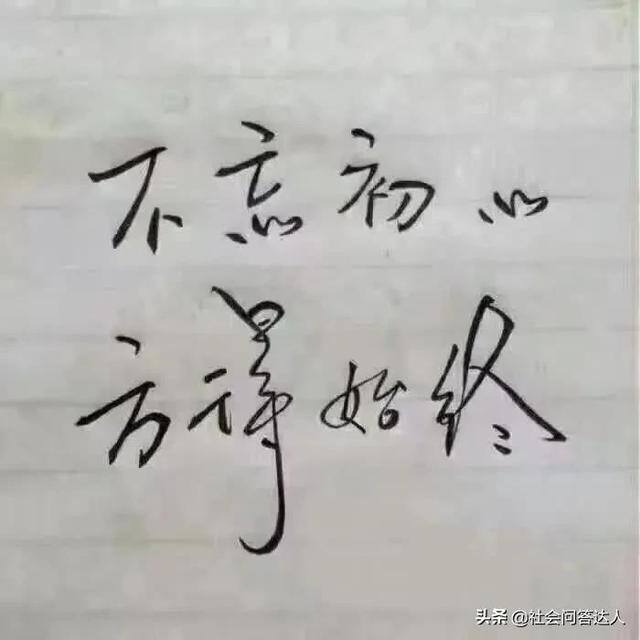 不忘初心
方得始终
头条 @社会问答达人